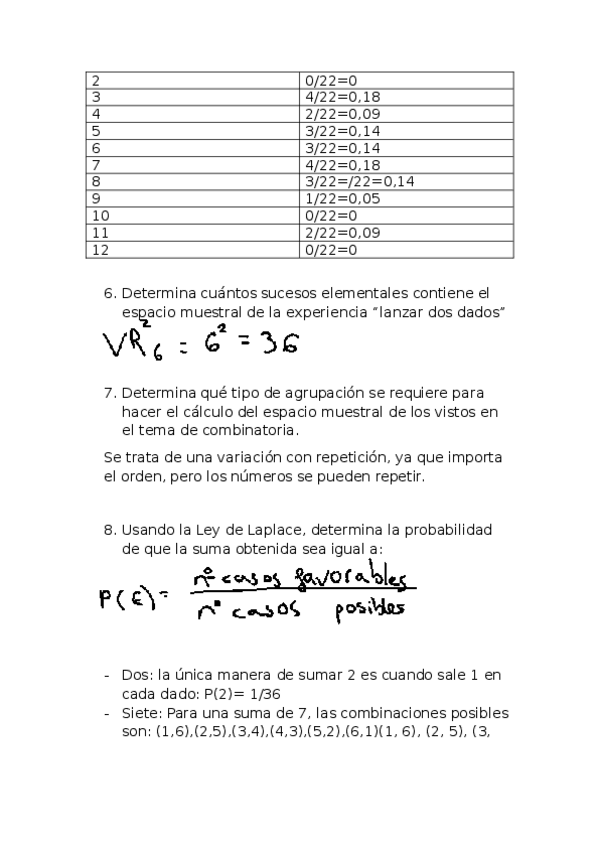 2 0/22=0
3 4/22=0,18
4 2/22=0,09
5 3/22=0,14
6 3/22=0,14
7 4/22=0,18
8 3/22=/22=0,14
9 1/22=0,05
10 0/22=0
11 2/22=0,09
12 0/22=0
6. Determina cuántos sucesos elementales contiene el
espacio muestral de la experiencia “lanzar dos dados”
VR²₆ = 6² = 36
7. Determina qué tipo de agrupación se requiere para
hacer el cálculo del espacio muestral de los vistos en
el tema de combinatoria.
Se trata de una variación con repetición, ya que importa
el orden, pero los números se pueden repetir.
8. Usando la Ley de Laplace, determina la probabilidad
de que la suma obtenida sea igual a:
nº casos favorables
P(E)=
nº casos posibles
- Dos: la única manera de sumar 2 es cuando sale 1 en
cada dado: P(2)= 1/36
- Siete: Para una suma de 7, las combinaciones posibles
son: (1,6),(2,5),(3,4),(4,3),(5,2),(6,1)(1, 6), (2, 5), (3,